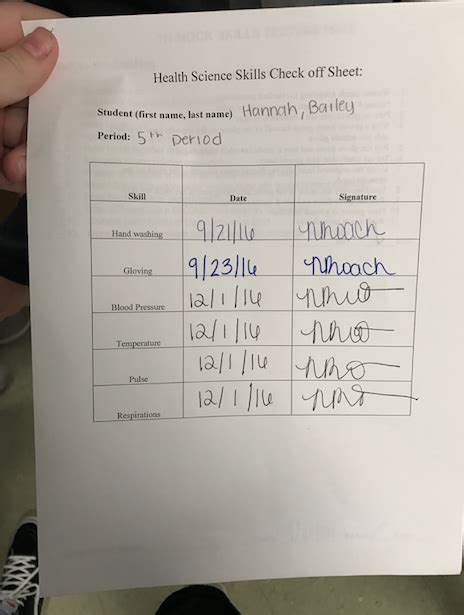 Health Science Skills Check off Sheet:
Student (first name, last name) Hannah, Bailey
Period: 5th period
Skill Date Signature
Hand washing 9/21/16 NRoach
Gloving 9/23/16 NRoach
Blood Pressure 12/1/16
Temperature 12/1/16
Pulse 12/1/16
Respirations 12/1/16